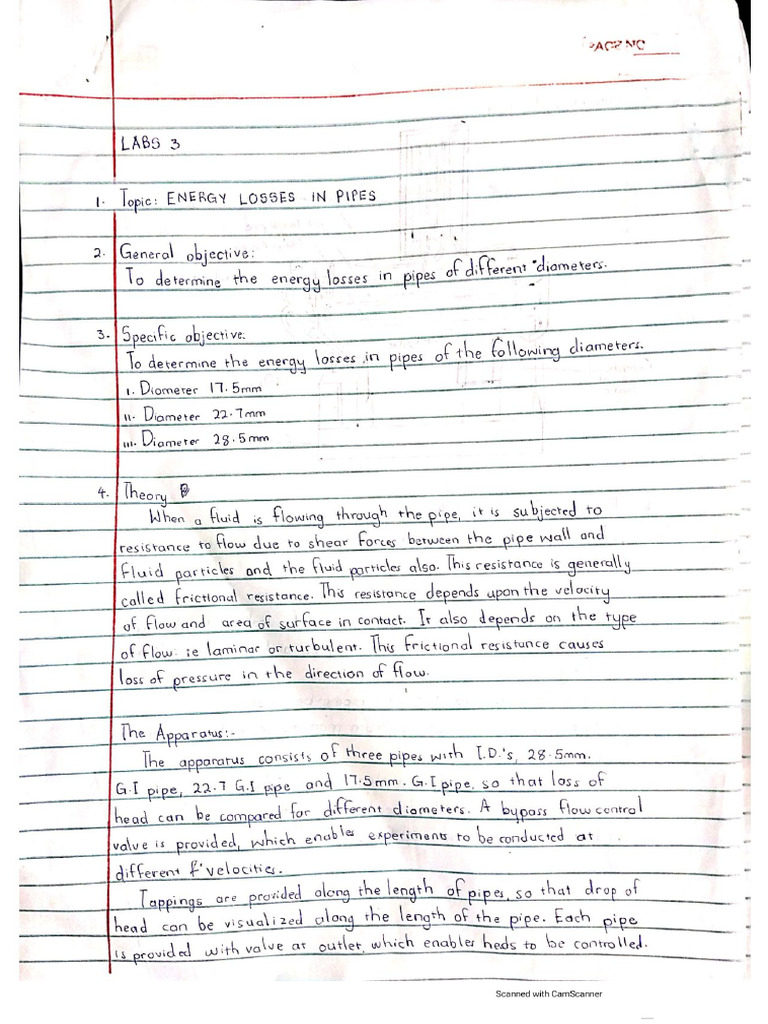 PAGE NO
LABS 3
1. Topic: ENERGY LOSSES IN PIPES
2. General objective:
To determine the energy losses in pipes of different diameters.
3. Specific objective:
To determine the energy losses in pipes of the following diameters.
i. Diameter 17.5mm
ii. Diameter 22.7mm
iii. Diameter 28.5mm
4. Theory
When a fluid is flowing through the pipe, it is subjected to
resistance to flow due to shear forces between the pipe wall and
fluid particles and the fluid particles also. This resistance is generally
called frictional resistance. This resistance depends upon the velocity
of flow and area of surface in contact. It also depends on the type
of flow. ie laminar or turbulent. This frictional resistance causes
loss of pressure in the direction of flow.
The Apparatus:-
The apparatus consists of three pipes with I.D.'s, 28.5mm.
G.I pipe, 22.7 G.I pipe and 17.5mm. G.I pipe, so that loss of
head can be compared for different diameters. A bypass flow control
value is provided, which enables experiments to be conducted at
different f' velocities.
Tappings are provided along the length of pipes, so that drop of
head can be visualized along the length of the pipe. Each pipe
is provided with value at outlet, which enables heds to be controlled.
Scanned with CamScanner